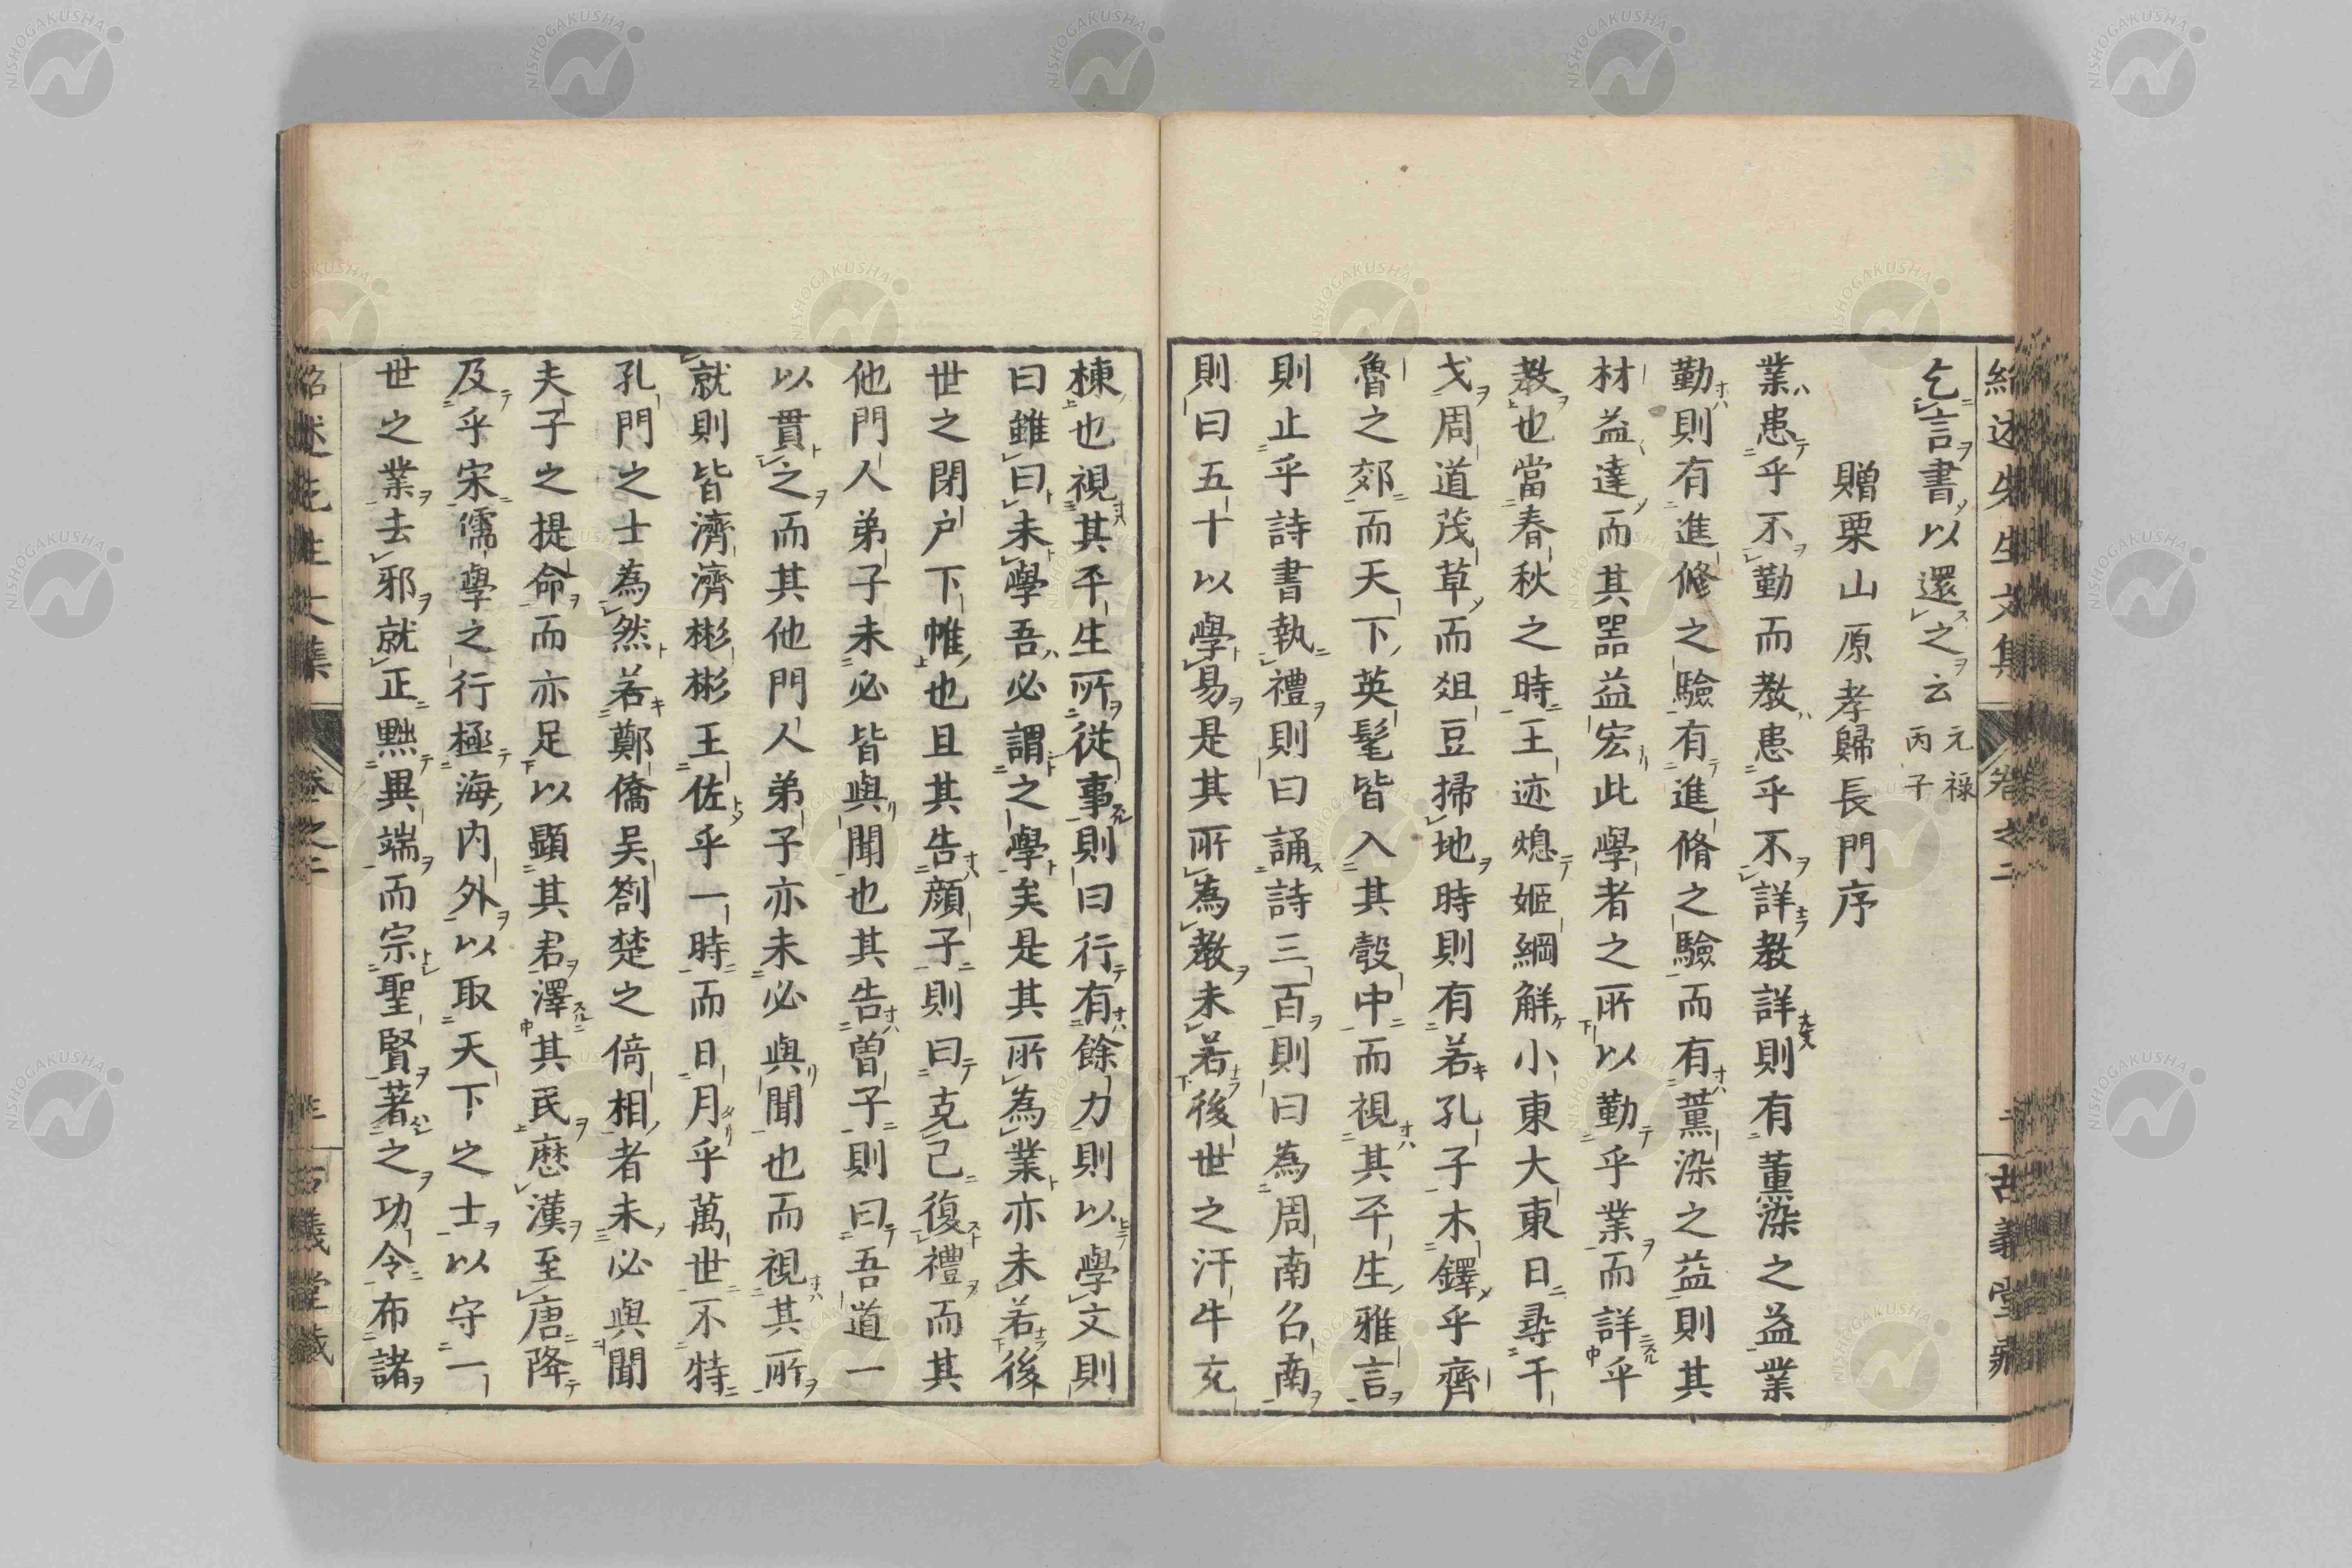 紹述先生文集 卷之二 二 古義堂藏
乞言書以還之云 元祿丙子
贈栗山原孝歸長門序
業患乎不勤而教患乎不詳教詳則有薫染之益業
勤則有進修之驗有進脩之驗而有薫染之益則其
材益達而其器益宏此學者之所以勤乎業而詳乎
教也當春秋之時王迹熄姬綱解小東大東日尋干
戈周道茂草而俎豆掃地時則有若孔子木鐸乎齊
魯之郊而天下英髦皆入其彀中而視其平生雅言
則止乎詩書執禮則曰誦詩三百則曰為周南召南
則曰五十以學易是其所為教未若後世之汗牛充
棟也視其平生所從事則曰行有餘力則以學文則
曰雖曰未學吾必謂之學矣是其所為業亦未若後
世之閉户下帷也且其告顔子則曰克己復禮而其
他門人弟子未必皆與聞也其告曽子則曰吾道一
以貫之而其他門人弟子亦未必與聞也而視其所
就則皆濟濟彬彬王佐乎一時而日月乎萬世不特
孔門之士為然若鄭僑吴劄楚之倚相者未必與聞
夫子之提命而亦足以顕其君澤其民歴漢至唐降
及乎宋儒學之行極海内外以取天下之士以守一
世之業去邪就正黜異端而宗聖賢著之功令布諸
紹述先生文集 卷之二 古義堂藏
NISHOGAKUSHA